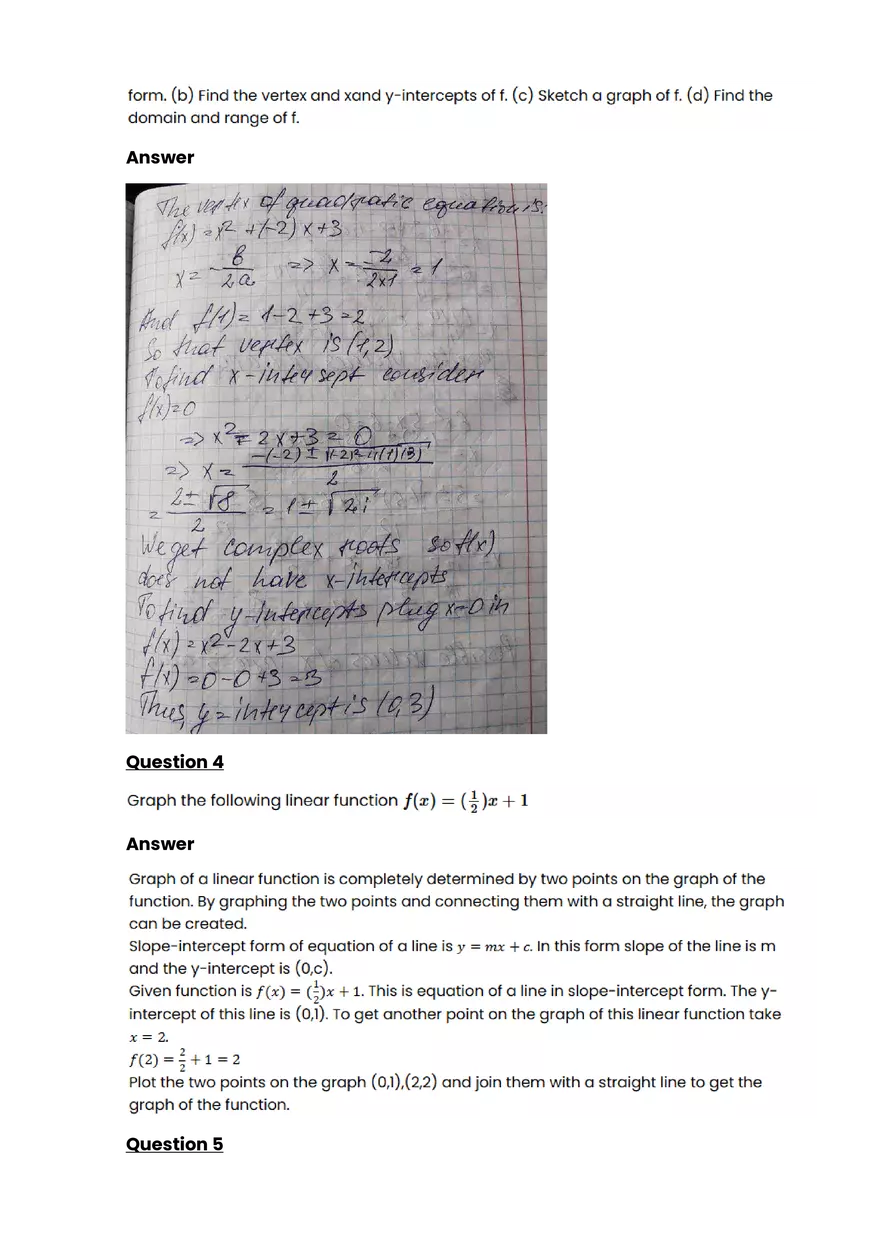 form. (b) Find the vertex and xand y-intercepts of f. (c) Sketch a graph of f. (d) Find the
domain and range of f.
Answer
The vertex of quadratic equation is:
f(x) = x² +(-2) x +3
x = - b/2a => x = - -2/2x1 = 1
And f(1) = 1-2+3 = 2
So that vertex is (1,2)
To find x-intersept consider
f(x)=0
=> x² - 2x+3 = 0
=> x = -(-2) ± √(-2)²-4(1)(3) / 2
= 2± √8 / 2 = 1 ± √2i
We get complex roots so f(x)
does not have x-intercepts
To find y-intercepts plug x=0 in
f(x) = x² - 2x+3
f(x) = 0-0+3 = 3
Thus, y = intercept is (0,3)
Question 4
Graph the following linear function f(x) = (1/2)x + 1
Answer
Graph of a linear function is completely determined by two points on the graph of the
function. By graphing the two points and connecting them with a straight line, the graph
can be created.
Slope-intercept form of equation of a line is y = mx + c. In this form slope of the line is m
and the y-intercept is (0,c).
Given function is f(x) = (1/2)x + 1. This is equation of a line in slope-intercept form. The y-
intercept of this line is (0,1). To get another point on the graph of this linear function take
x = 2.
f(2) = 2/2 + 1 = 2
Plot the two points on the graph (0,1),(2,2) and join them with a straight line to get the
graph of the function.
Question 5